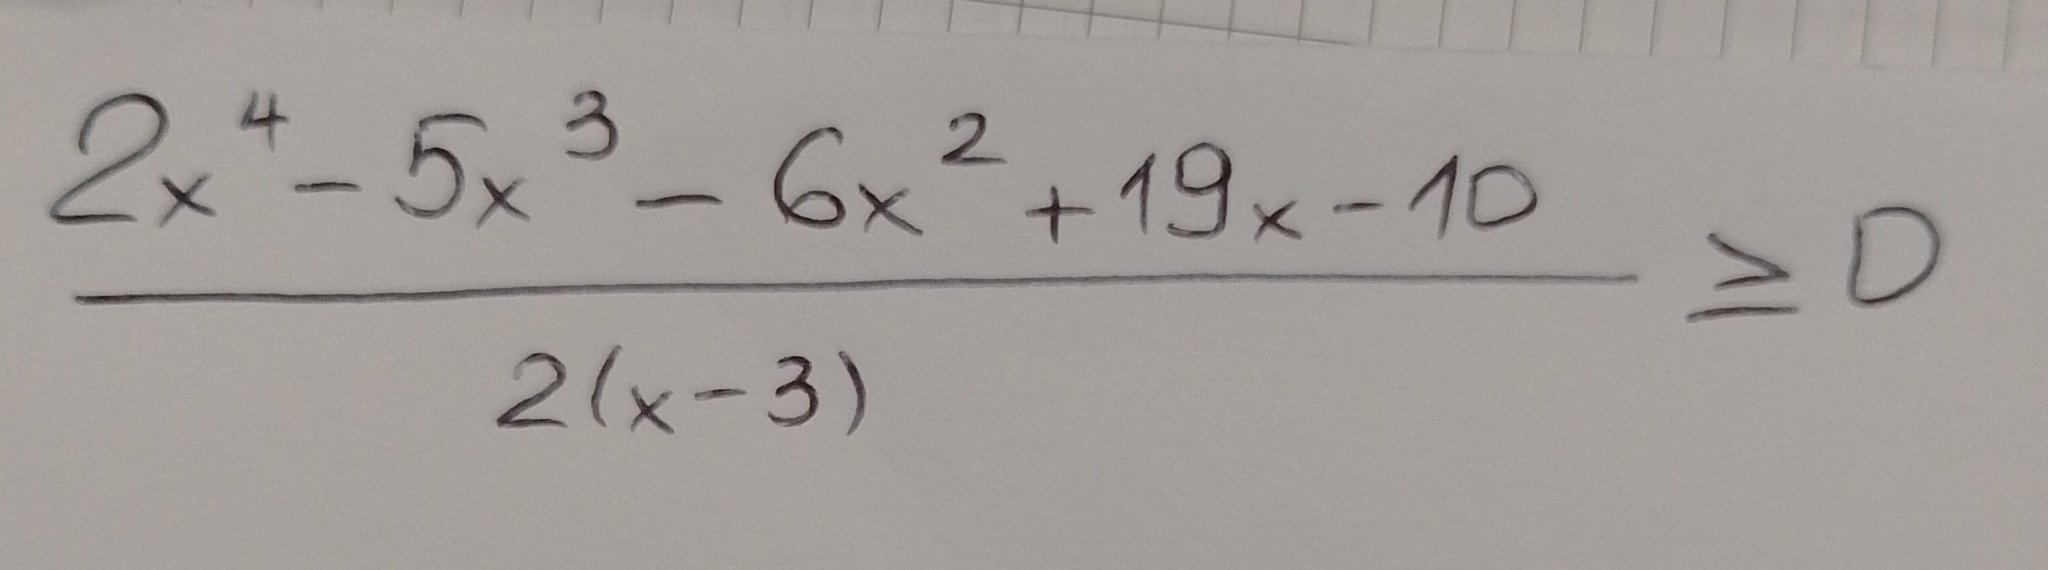 2x⁴ - 5x³ - 6x² + 19x - 10 ≥ 0
2(x - 3)